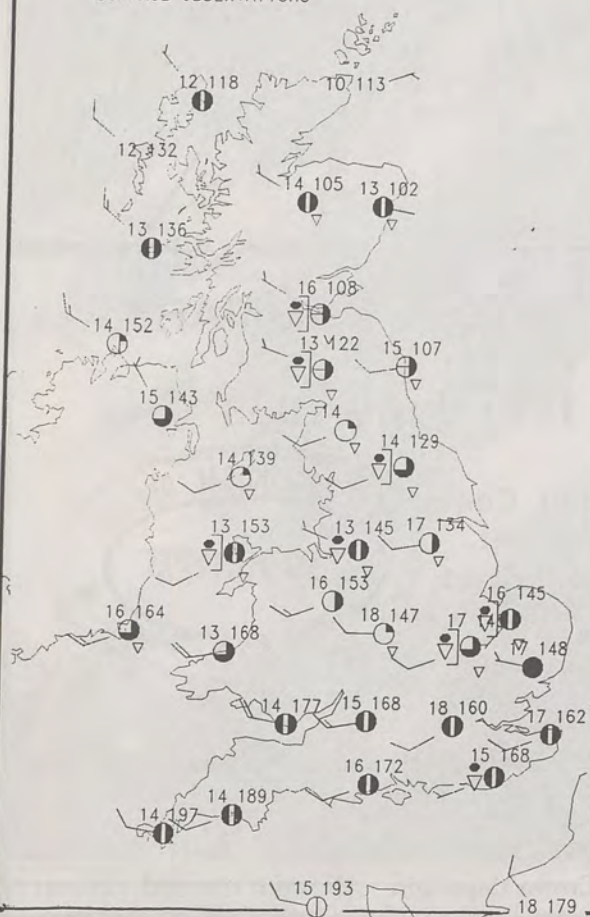 12 118
10 113
12 132
14 105
13 102
13 136
16 108
14 152
13 122
15 107
15 143
14
14 129
14 139
13 153
13 145
17 134
16 153
16 145
16 164
18 147
17
13 168
148
14 177
15 168
18 160
17 162
16 172
15 168
14 197
14 189
15 193
18 179